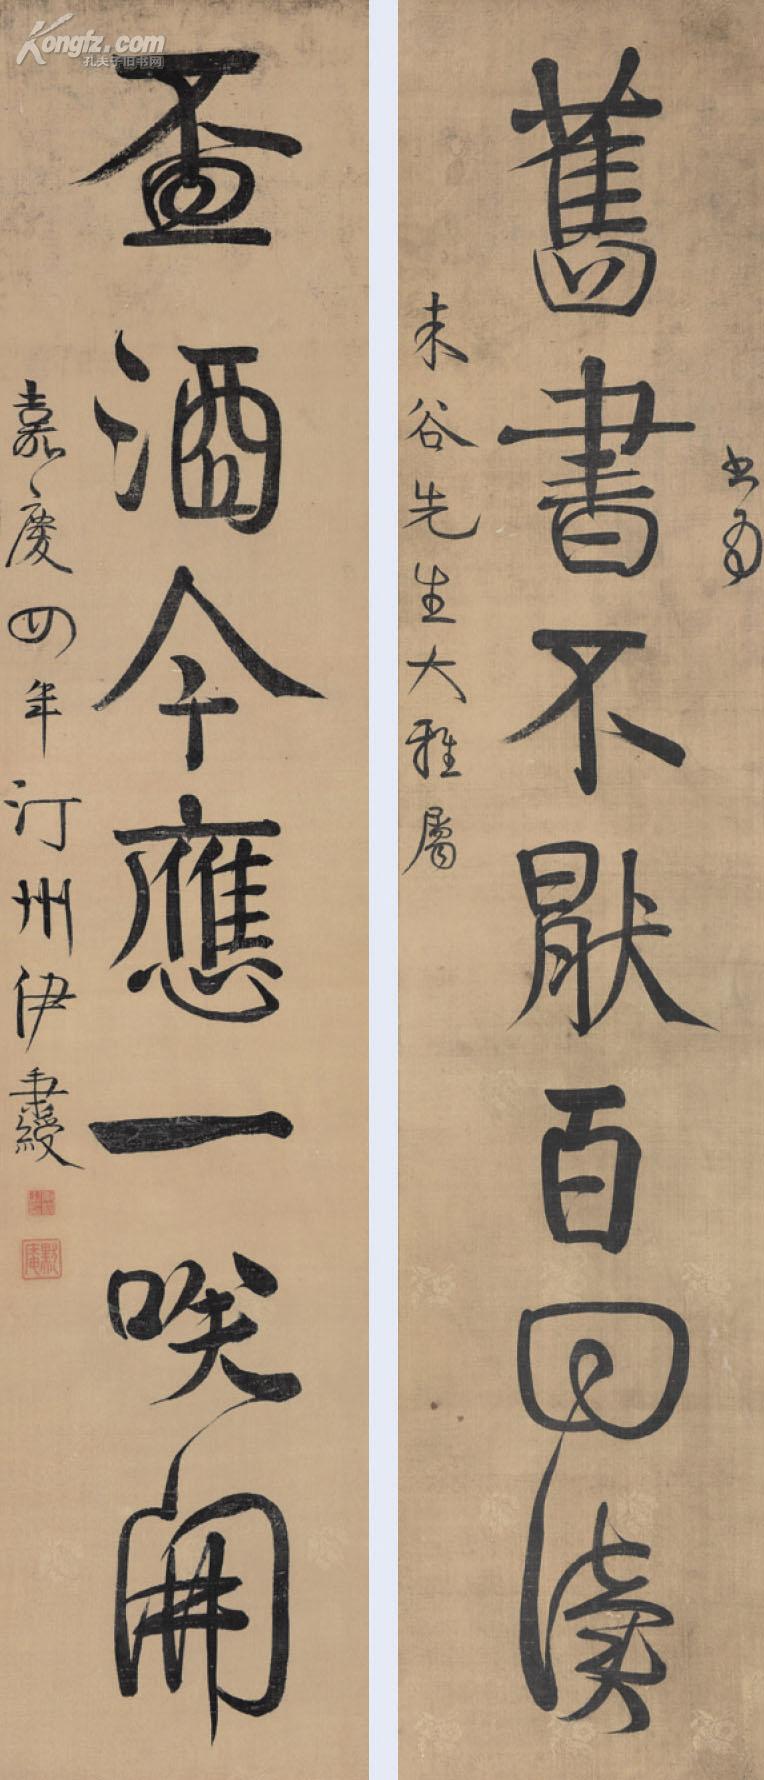 書為
舊書不厭百回讀
未谷先生大雅屬
盃酒今應一咲開
嘉慶四年汀州伊秉綬
Kongfz.com
孔夫子旧书网